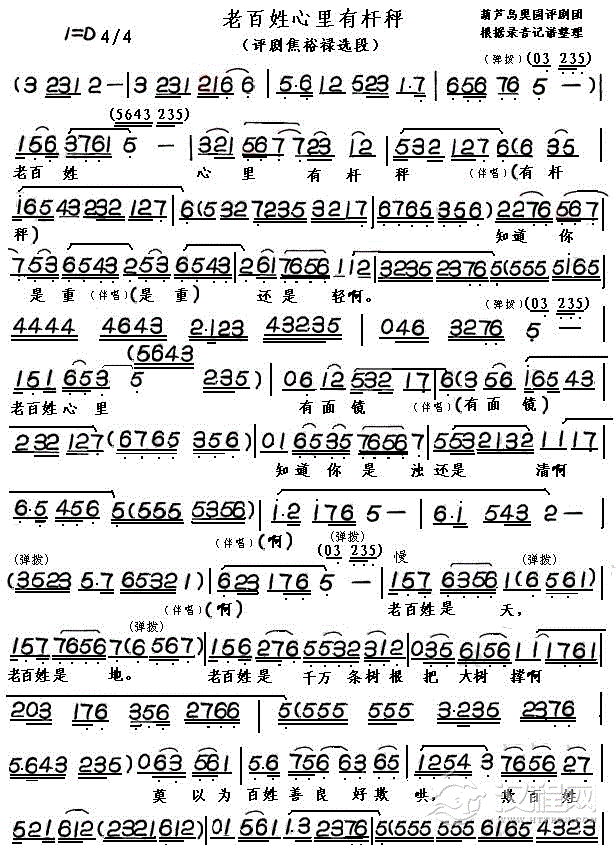 老百姓心里有杆秤
(评剧焦裕禄选段)
葫芦岛奥园评剧团
根据录音记谱整理
1=D 4/4
(弹拨) (03 235)
(3 231 2 - | 3 231 216 6 | 5·6 12 523 1·7 | 6 656 76 5 -) |
(5643 235)
156 3761 5 - | 321 567 723 12 | 532 127 6(6 35
老百姓 心里 有杆 秤 (伴唱)(有杆
165 43 232 127 | 6(532 7235 3217 | 6765 356) 2276 567 |
秤) 知道 你
753 6543 253 6543 | 2617 656 112 | 3235 2376 5(555 5165
是重(伴唱)(是重) 还是 轻啊。
(弹拨) (03 235)
4444 4643 2·123 43235 | 046 3276 5 - |
(5643
151 653 5 235) | 06 12 532 17 | 6(3 56 165 43
老百姓心 里 有面镜 (伴唱)(有面 镜)
232 127 (6765 356) | 01 6535 76567 | 553 2132 111 7
知道你 是 浊还是 清啊
6·5 456 5(555 5356) | 1·2 176 5 - | 6·1 543 2 -
(伴唱)(啊)
(弹拨) (弹拨) (03 235) 慢 (弹拨)
(3523 5·7 65321) | 623 176 5 - | 157 6356 1(6 561)
(伴唱)(啊) 老百姓是 天,
(弹拨)
157 7656 7(6 567) | 156 276 5532 312 | 035 6156 11 1761
老百姓是 地。 老百姓是 千万 条树根 把 大树 撑啊
203 176 356 2766 | 5(555 555 3·235 2376
5·643 235) 063 561 | 5·6 756 63 65 | 1254 3 7656 27
莫以为 百姓善良 好欺 哄, 欺百姓
521 612 (2321 612) | 01 561 1·3 2376 | 5(555 555 6165 4323